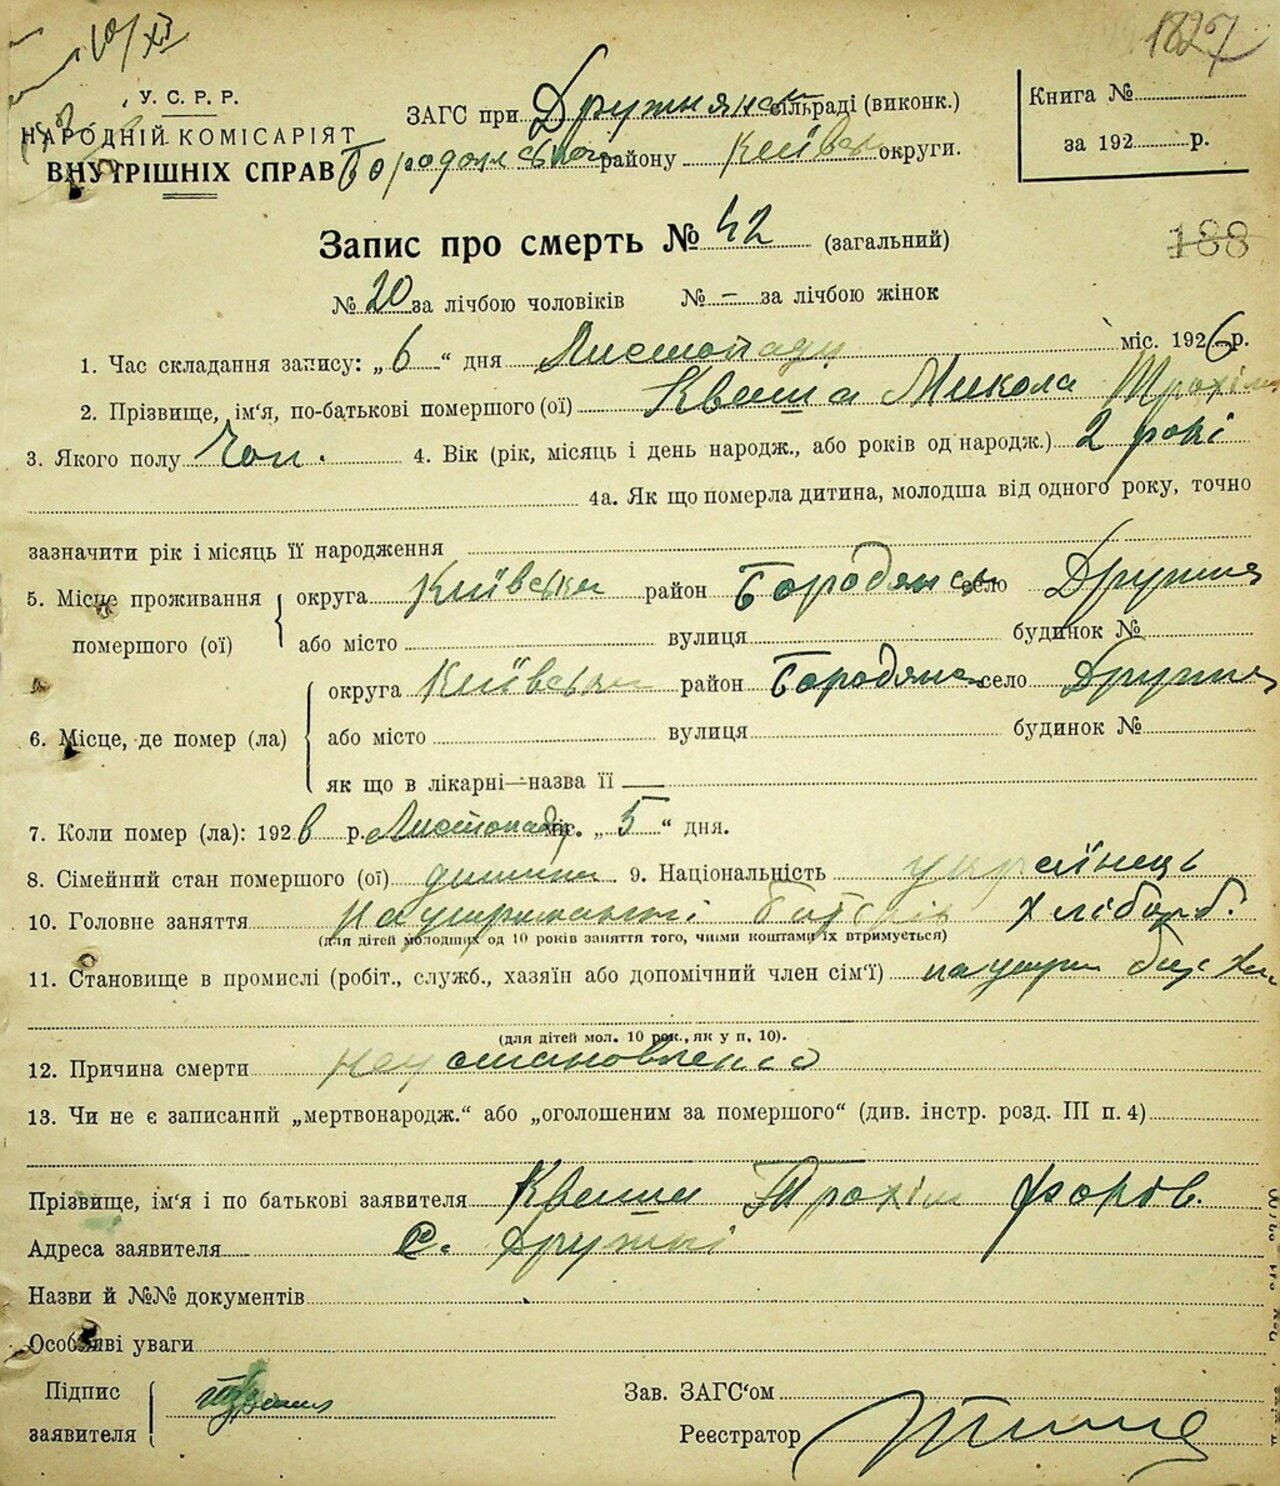 10/XI
1827
У. С. Р. Р.
НАРОДНІЙ КОМІСАРІЯТ
ВНУТРІШНІХ СПРАВ
ЗАГС при Дружнянськ сільраді (виконк.)
Бородянського району Київськ округи.
Книга №
за 192 р.
Запис про смерть № 42 (загальний)
188
№ 20 за лічбою чоловіків № – за лічбою жінок
1. Час складання запису: „6“ дня Листопаду міс. 1926 р.
2. Прізвище, ім'я, по-батькові помершого (ої) Кваша Микола Трохим
3. Якого полу Чол. 4. Вік (рік, місяць і день народж., або років од народж.) 2 рокі
4а. Як що померла дитина, молодша від одного року, точно
зазначити рік і місяць її народження
5. Місце проживання помершого (ої) округа Київська район Бородянськ село Дружня
або місто вулиця будинок №
6. Місце, де помер (ла) округа Київська район Бородянськ село Дружня
або місто вулиця будинок №
як що в лікарні—назва її —
7. Коли помер (ла): 1926 р. Листопаду міс. „5“ дня.
8. Сімейний стан помершого (ої) дитина 9. Національність українець
10. Головне заняття на утриманні батьків хлібороб.
(для дітей молодших од 10 років заняття того, чиїми коштами їх втримується)
11. Становище в промислі (робіт., служб., хазяїн або допомічний член сім'ї) на утрим
(для дітей мол. 10 рок., як у п. 10).
12. Причина смерти неустановлено
13. Чи не є записаний „мертвонародж.“ або „оголошеним за помершого“ (див. інстр. розд. III п. 4)
Прізвище, ім'я і по батькові заявителя Кваша Трохим
Адреса заявителя с. Дружні
Назви й №№ документів
Особливі уваги
Підпис заявителя
Зав. ЗАГС'ом
Реєстратор